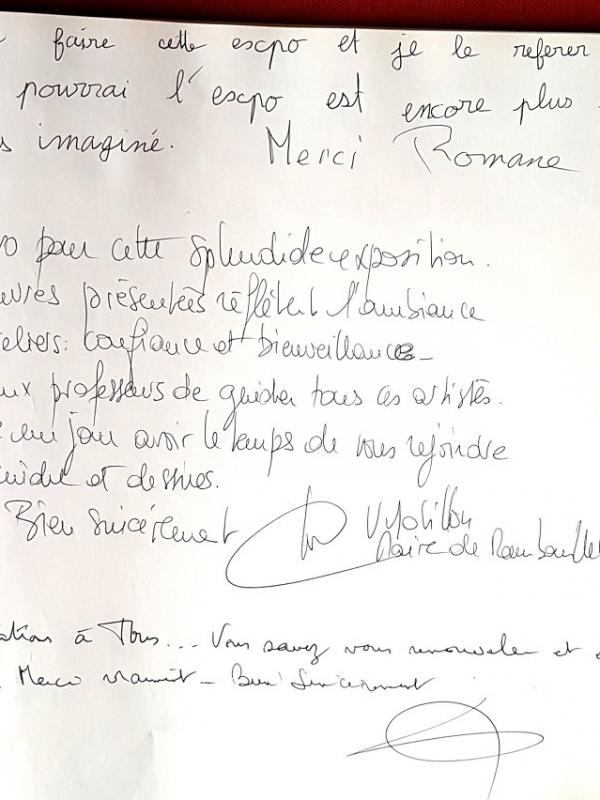 faire cette escpo et je le referer
pourrai l'escpo est encore plus
s imaginé. Merci Romane
o pour cette splendide exposition.
uvres présentées réflètent l'ambiance
eliers: confiance et bienveillance
ux professeurs de guider tous ces artistes.
un jour avoir le temps de vous rejoindre
eindre et dessiner.
Bien sincèrement
Maire de Rambouillet
ation à Tous... Vous savez vous renouveler et
Merci vraiment - Bien sincèrement